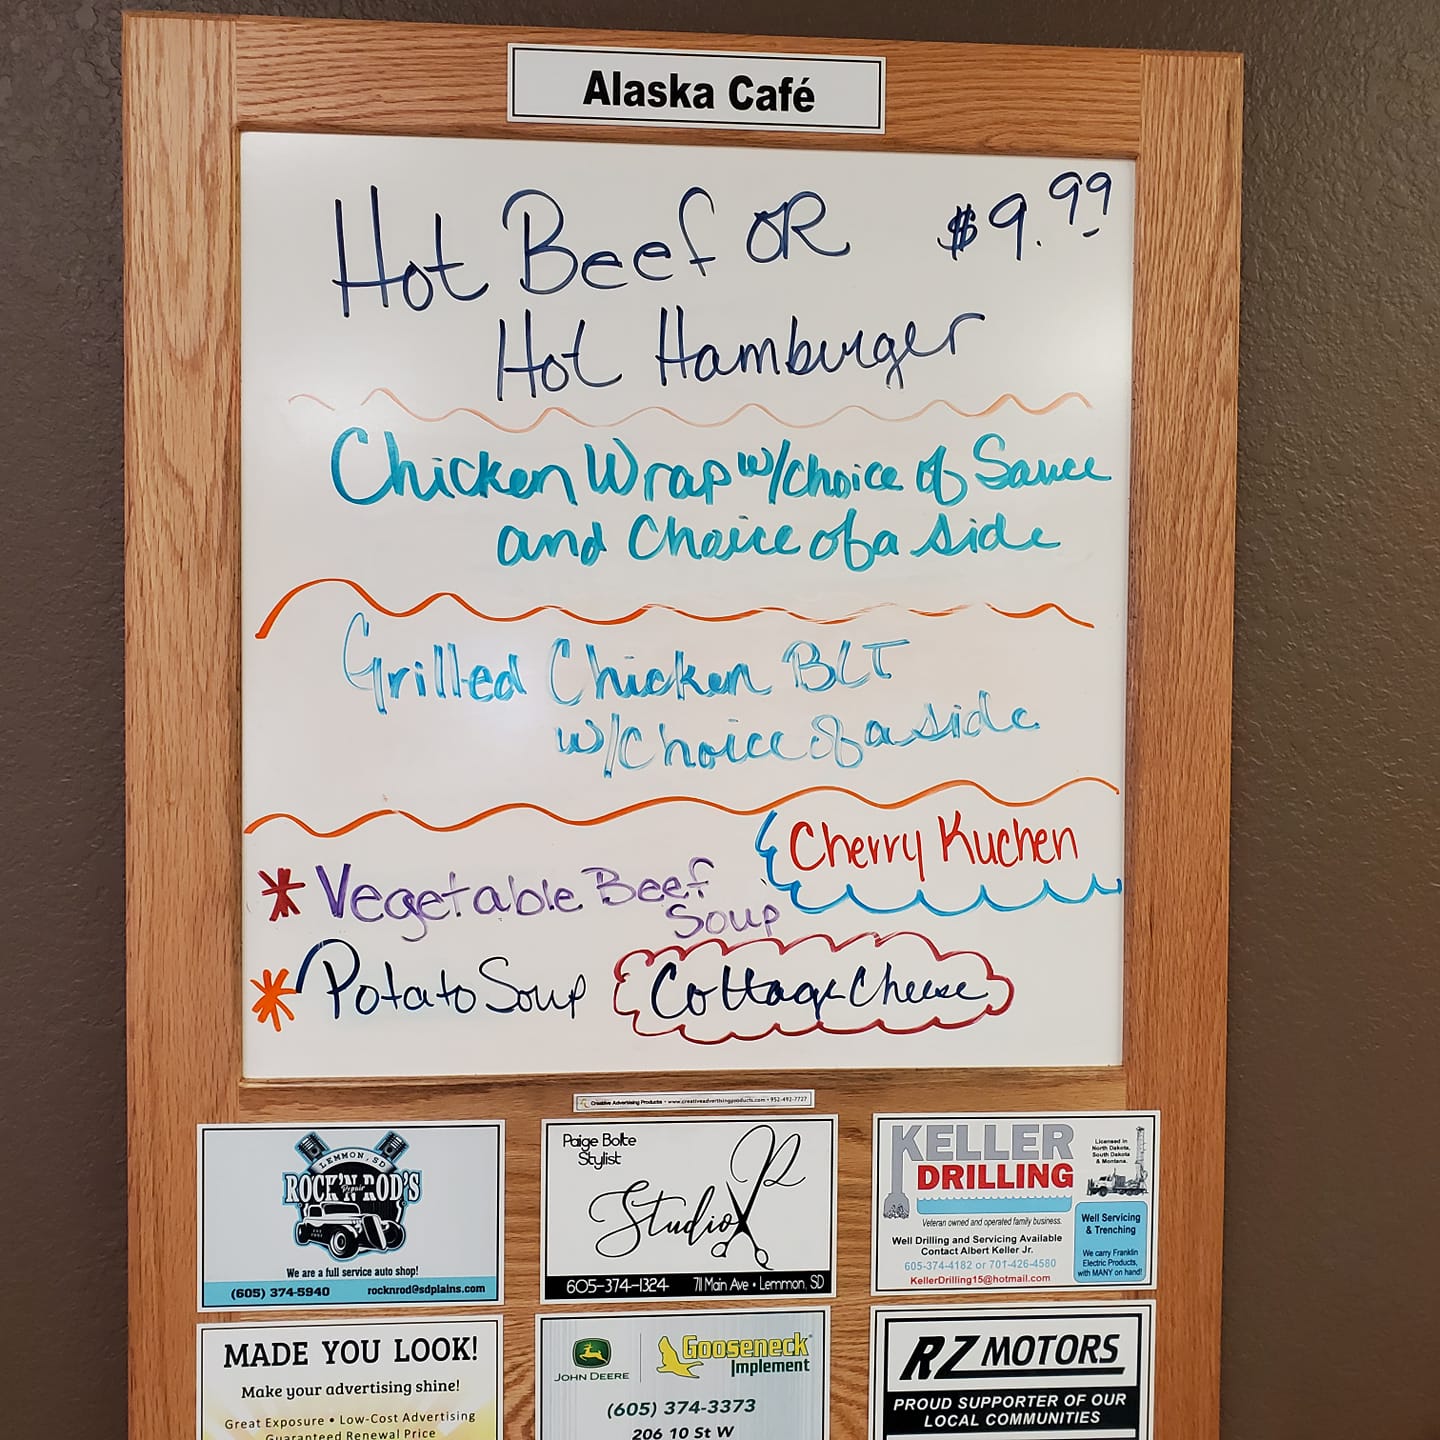 Alaska Café
Hot Beef OR $9.99
Hot Hamburger
Chicken Wrap w/choice of Sauce
and Choice of a side
Grilled Chicken BLT
w/choice of a side
Cherry Kuchen
* Vegetable Beef
Soup
* Potato Soup Cottage Cheese
Creative Advertising Products • www.creativeadvertisingproducts.com • 952-492-7727
LEMMON, SD
ROCK'N ROD'S
Repair
We are a full service auto shop!
(605) 374-5940 rocknrod@sdplains.com
Paige Bolte
Stylist
Studio P
605-374-1324 711 Main Ave • Lemmon, SD
KELLER
DRILLING
Licensed in
North Dakota,
South Dakota
& Montana.
Veteran owned and operated family business.
Well Drilling and Servicing Available
Contact Albert Keller Jr.
605-374-4182 or 701-426-4580
KellerDrilling15@hotmail.com
Well Servicing
& Trenching
We carry Franklin
Electric Products,
with MANY on hand!
MADE YOU LOOK!
Make your advertising shine!
Great Exposure • Low-Cost Advertising
Guaranteed Renewal Price
JOHN DEERE
Gooseneck
Implement
(605) 374-3373
206 10 St W
RZ MOTORS
PROUD SUPPORTER OF OUR
LOCAL COMMUNITIES